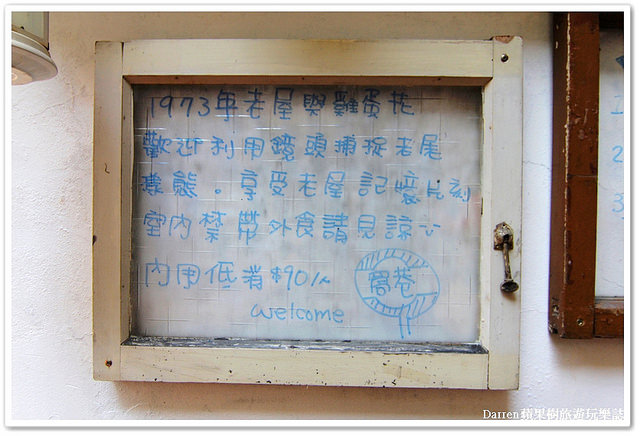 1973年老屋與雞蛋花
歡迎利用鏡頭捕捉老屋
姿態。享受老屋記憶片刻
室內禁帶外食請見諒
內用低消$90/人
窩巷
welcome
1
2
3
Darren蘋果樹旅遊玩樂誌